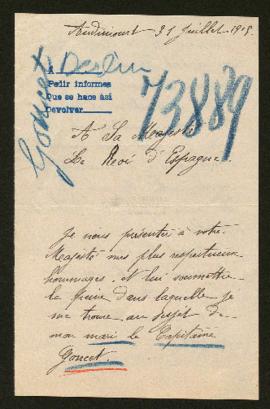 Audincourt 31 juillet 1915.
Berlin
A
Pedir informes
Que se hace así
Devolver
Goncet
73889
A Sa Majesté
Le Roi d'Espagne
Je vous présenter à votre
Majesté mes plus respectueux
hommages. Et lui soumettre
la peine dans laquelle je
me trouve au sujet de
mon mari le Capitaine
Goncet.